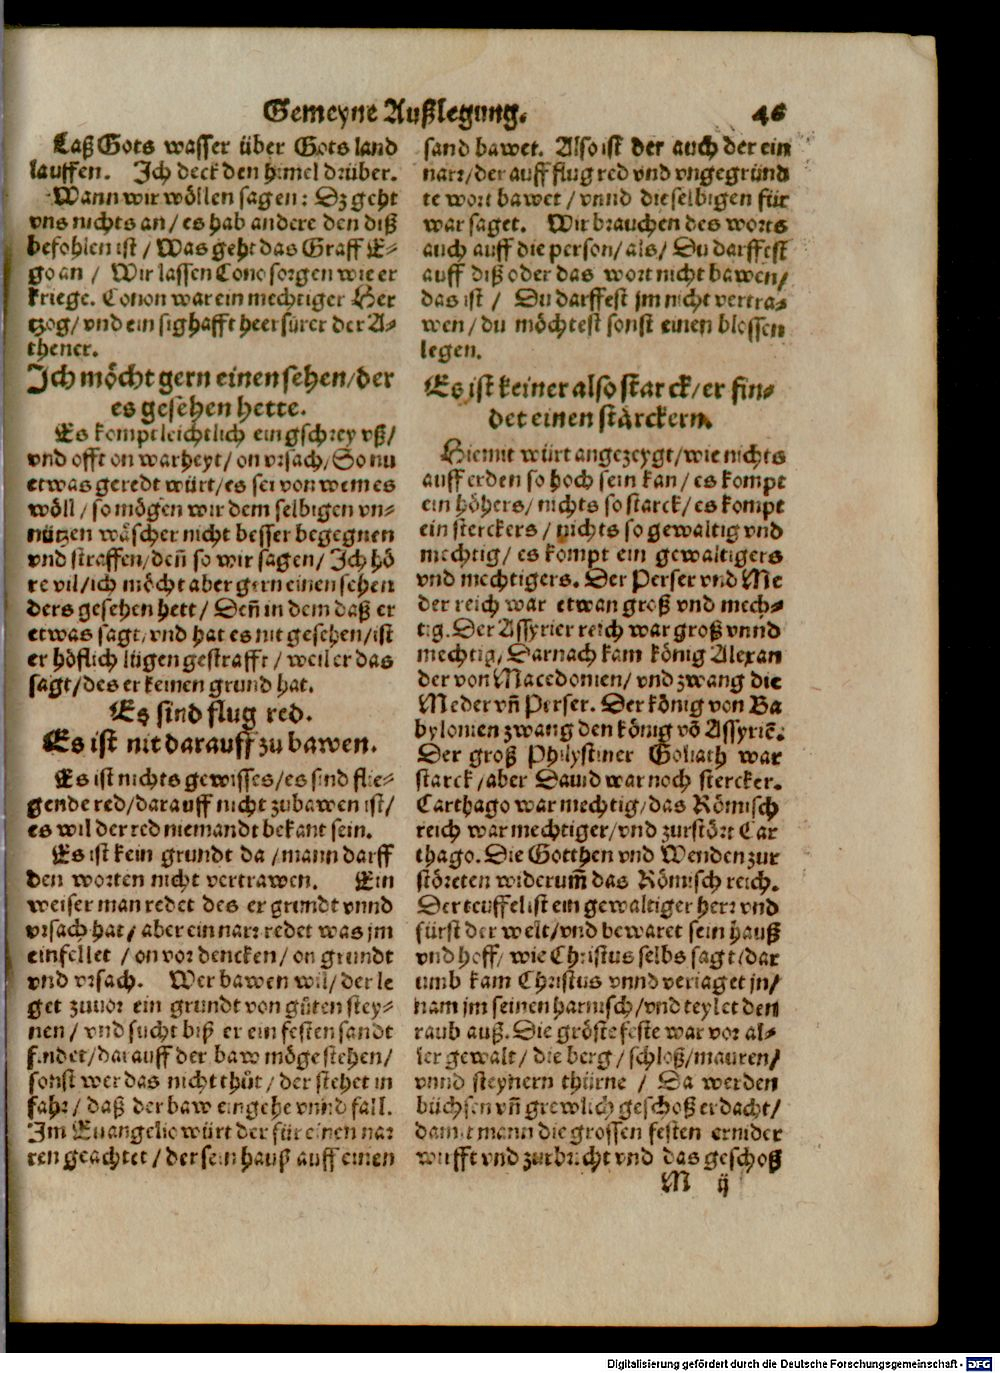 Gemeyne Außlegung. 46
Laß Gots wasser über Gots land
lauffen. Ich deck den himel drüber.
Wann wir wöllen sagen: Dz geht
vns nichts an / es hab andere den diß
befohlen ist / Was geht das Graff E⸗
go an / Wir lassen Cono sorgen wie er
kriege. Conon war ein mechtiger Her
tzog / vnd ein sighafft heerfürer der A⸗
thener.
Ich möcht gern einen sehen / der
es gesehen hette.
Es kompt leichtlich ein gschrey vß /
vnd offt on warheyt / on vrsach / So nu
etwas geredt würt / es sei von wem es
wöll / so mögen wir dem selbigen vn⸗
nützen wäscher nicht besser begegnen
vnd straffen / deñ so wir sagen / Ich hö
re vil / ich möcht aber gern einen sehen
ders gesehen hett / Deñ in dem daß er
etwas sagt / vnd hat es nit gesehen / ist
er höflich lügen gestrafft / weil er das
sagt / des er keinen grund hat.
Es sind flug red.
Es ist nit darauff zu bawen.
Es ist nichts gewisses / es sind flie⸗
gende red / darauff nicht zubawen ist /
es wil der red niemandt bekant sein.
Es ist kein grundt da / mann darff
den worten nicht vertrawen. Ein
weiser man redet des er grundt vnnd
vrsach hat / aber ein narr redet was jm
einfellet / on vordencken / on grundt
vnd vrsach. Wer bawen wil / der le
get zuuor ein grundt von gůten stey⸗
nen / vnd sucht biß er ein festen sandt
findet / darauff der baw möge stehen /
sonst wer das nicht thůt / der stehet in
fahr / daß der baw eingehe vnnd fall.
Im Euangelio würt der für einen nar
ren geachtet / der sein hauß auff einen
sand bawet. Also ist der auch der ein
narr / der auff flug red vnd vngegründ
te wort bawet / vnnd die selbigen für
war saget. Wir brauchen des worts
auch auff die person / als / Du darffest
auff diß oder das wort nicht bawen /
das ist / Du darffest jm nicht vertra⸗
wen / du möchtest sonst einen blossen
legen.
Es ist keiner also starck / er fin⸗
det einen stärckern.
Hiemit würt angezeygt / wie nichts
auff erden so hoch sein kan / es kompt
ein höhers / nichts so starck / es kompt
ein sterckers / nichts so gewaltig vnd
mechtig / es kompt ein gewaltigers
vnd mechtigers. Der Perser vnd Me
der reich war etwan groß vnd mech⸗
tig. Der Assyrier reich war groß vnnd
mechtig / Darnach kam könig Alexan
der von Macedonien / vnd zwang die
Meder vñ Perser. Der könig von Ba
bylonien zwang den könig võ Assyriẽ.
Der groß Philystiner Goliath war
starck / aber Dauid war noch stercker.
Carthago war mechtig / das Römisch
reich war mechtiger / vnd zurstört Car
thago. Die Gotthen vnd Wenden zur
störeten widerum̃ das Römisch reich.
Der teuffel ist ein gewaltiger herr vnd
fürst der welt / vnd bewaret sein hauß
vnd hoff / wie Christus selbs sagt / dar
umb kam Christus vnnd veriaget jn /
nam jm seinen harnisch / vnd teylet den
raub auß. Die gröste feste war vor al⸗
ler gewalt / die berg / schloß / mauren /
vnnd steynern thürne / Da werden
büchsen vñ grewlich geschoß erdacht /
damit mann die grossen festen ernider
wirfft vnd zurbricht vnd das geschoß
M ij
Digitalisierung gefördert durch die Deutsche Forschungsgemeinschaft - DFG